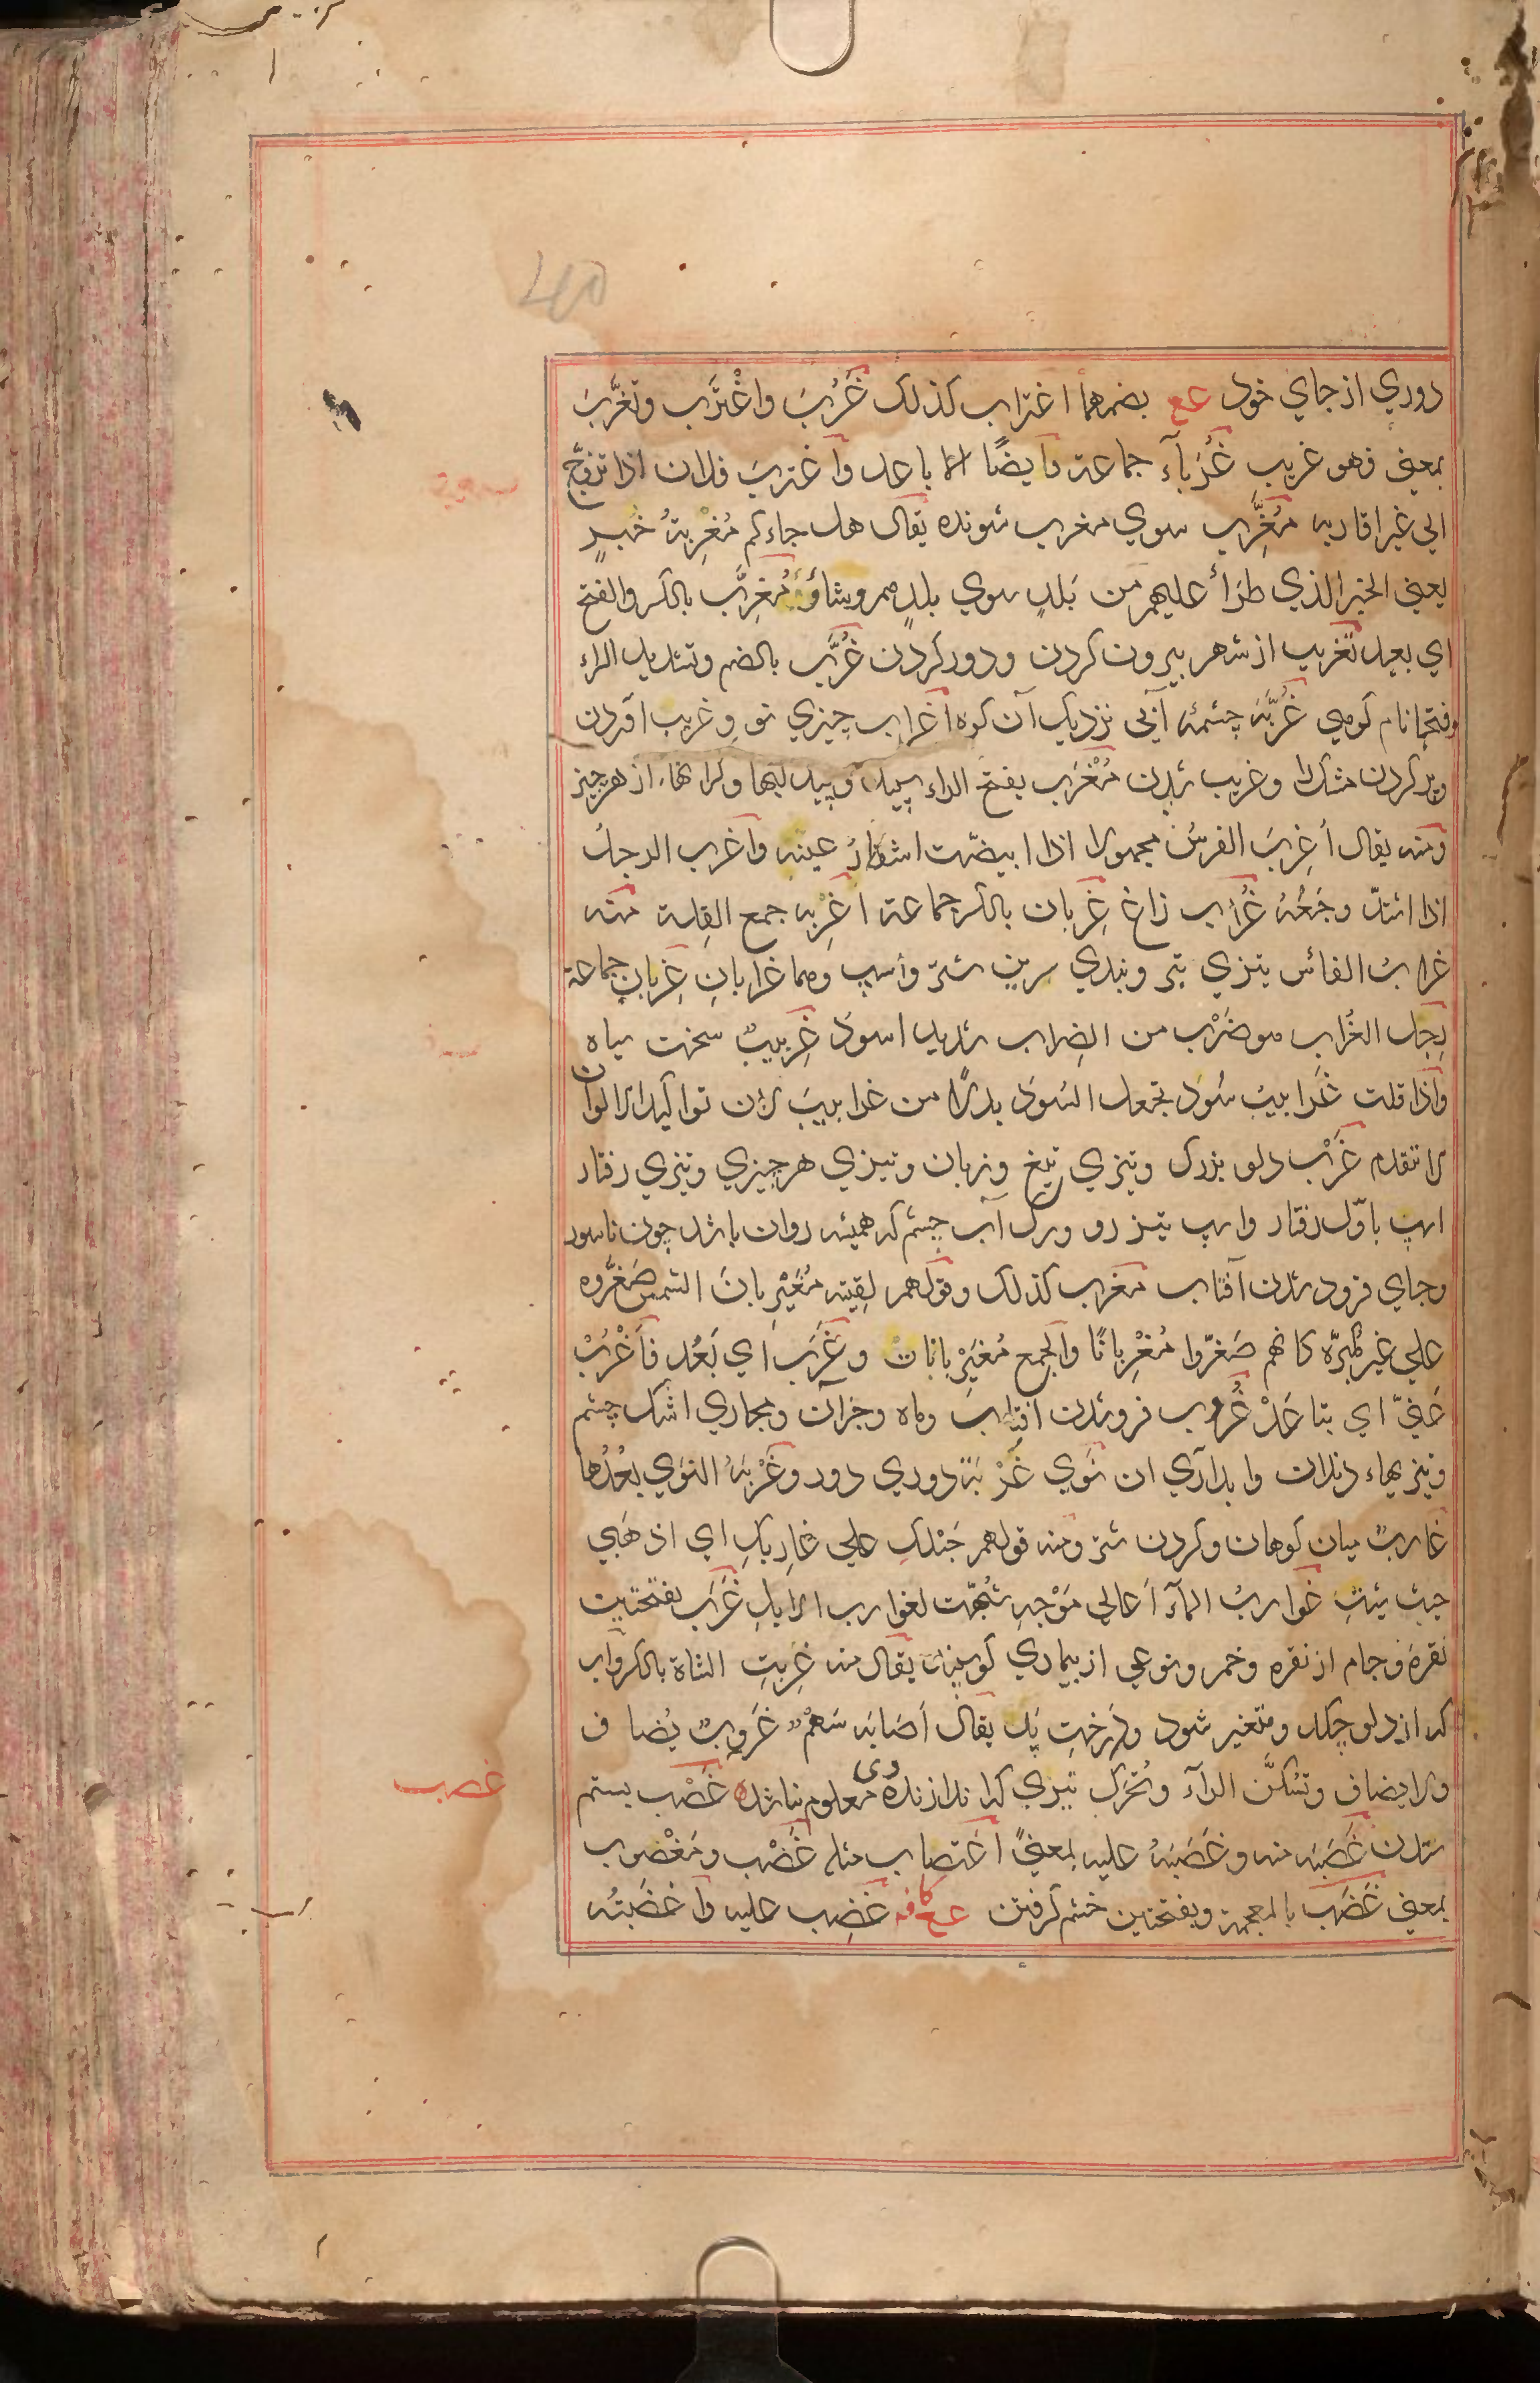 دوري از جاي خود عع بضمهما اغتراب كذلك غَرُبَ واغْتَرَب وتغَرَّبَ
بمعني فهو غريب غُرَبآء جماعة وايضًا الاباعد واغتربَ فلان اذا تزوّج
الي غير اقاربه مُغَرِّب سوي مغرب شونده يقال هل جاءكم مُغرِّبةُ خَبرٍ
يعني الخبر الذي طَرَأ عليهم من بَلدٍ سوي بلدهم وشأوٌ مُغرِّب بالكسر والفتح
اي بعيد تغريب از شهر بيرون كردن ودور كردن غُرَّب بالضم وتشديد الراء
وفتحها نام كوهي غُرَّبَة چشمۀ آبي نزديك آن كوه اغراب چيزي نو وغريب آوردن
وپر كردن مشك وغريب شدن مُغْرَب بفتح الراء سپيد وسپيد لبها وكرانهاء از هر چيز
ومنه يقال اُغرِبَ الفرسُ مجهولا اذا ابيضّت اشفار عينيه واُغرب الرجلُ
اذا اشتدّ وجَعُهُ غُراب زاغ غِربان بالكسر جماعة اَغْرِبه جمع القلة منه
غرابُ الفاس تيزي تبر وبلندي سرين شتر واسپ وهما غرابانِ غِربان جماعة
رِجل الغُراب هو ضَرْب من الضِراب شديد اسود غِربيبٌ سخت سياه
واذا قلت غَرابيبُ سُود تجعل السُودَ بدلًا من غرابيبَ لان تواكيد الالوان
لا تتقدم غَرْب دلو بزرك وتيزي تيغ وزبان وتيزي هر چيزي وتيزي رفتار
اسپ باوّل رفتار واسپ تيز رو ورك آب چشم كه هميشه روان باشد چون ناسور
وجاي فرود شدن آفتاب مغرب كذلك وقولهم لقيته مُغَيْرِبانَ الشمس صَغَّروه
علي غير مُكبَّره كانهم صَغّروا مُغْرِبانًا والجمع مُغَيْرِبانات وغَرَب اي بَعُد فاغْرُبْ
عَنّي اي تباعَدْ غُروب فروشدن آفتاب وماه وجز آن ومجاري اشك چشم
وتيزيهاء دندان نَوي غَرْبَة دوري دور وغَرْبَةُ النوي بُعْدُها
غاربٌ ميان كوهان وكردن شتر ومنه قولهم حَبْلكِ علي غارِبكِ اي اذهَبي
حيث شِئتِ غواربُ المآء اَعالي مَوْجِه شُبِّهت لغوارب الابل غَرَب بفتحتين
نقره وجام از نقره وخمر ونوعي از بيماري كوسپندان يقال منه غَرِبَتِ الشاة بالكسر وآب
كه از دلو چكد ومتغير شود ودرخت پَد يقال اَصَابَه سَهْمُ غَربٍ يُضاف
ولا يضاف وتسكن الرآء وتُحَرّك تيري كه اندازندۀ وي معلوم نباشد غَصْب بستم
ستدن غَصَبَه منه وغَصَبَهُ عليه بمعني اغتصاب مثله غَصْب ومَغْصوب
بمعني غَضَب بالمعجمة وبفتحتين خشم كرفتن عع كافه غَضِب عليه واَغضَبتُه
غصب